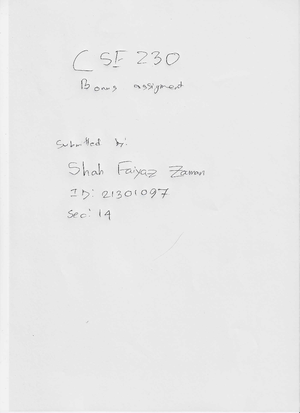 CSE 230
Bonus assigment
Submitted by:
Shah Faiyaz Zaman
ID: 21301097
Sec: 14